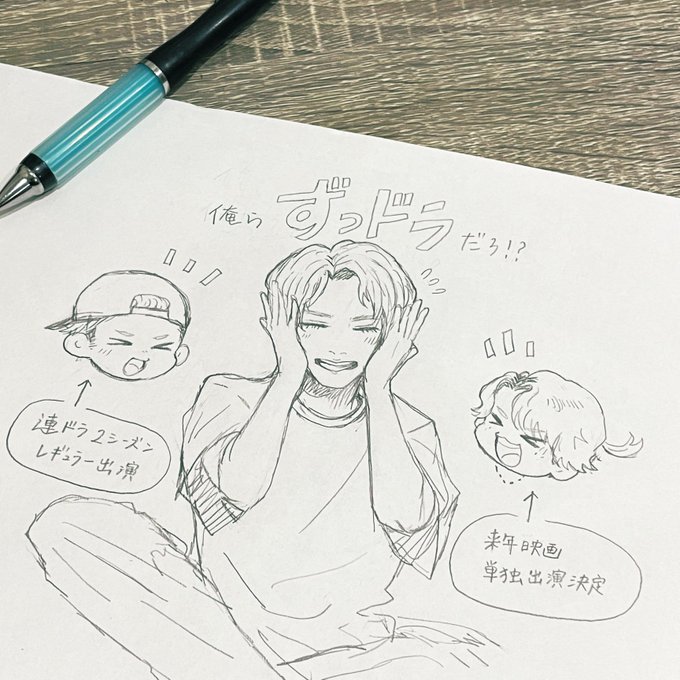 俺らずっドラだろ!?
連ドラ2シーズン
レギュラー出演
来年映画
単独出演決定